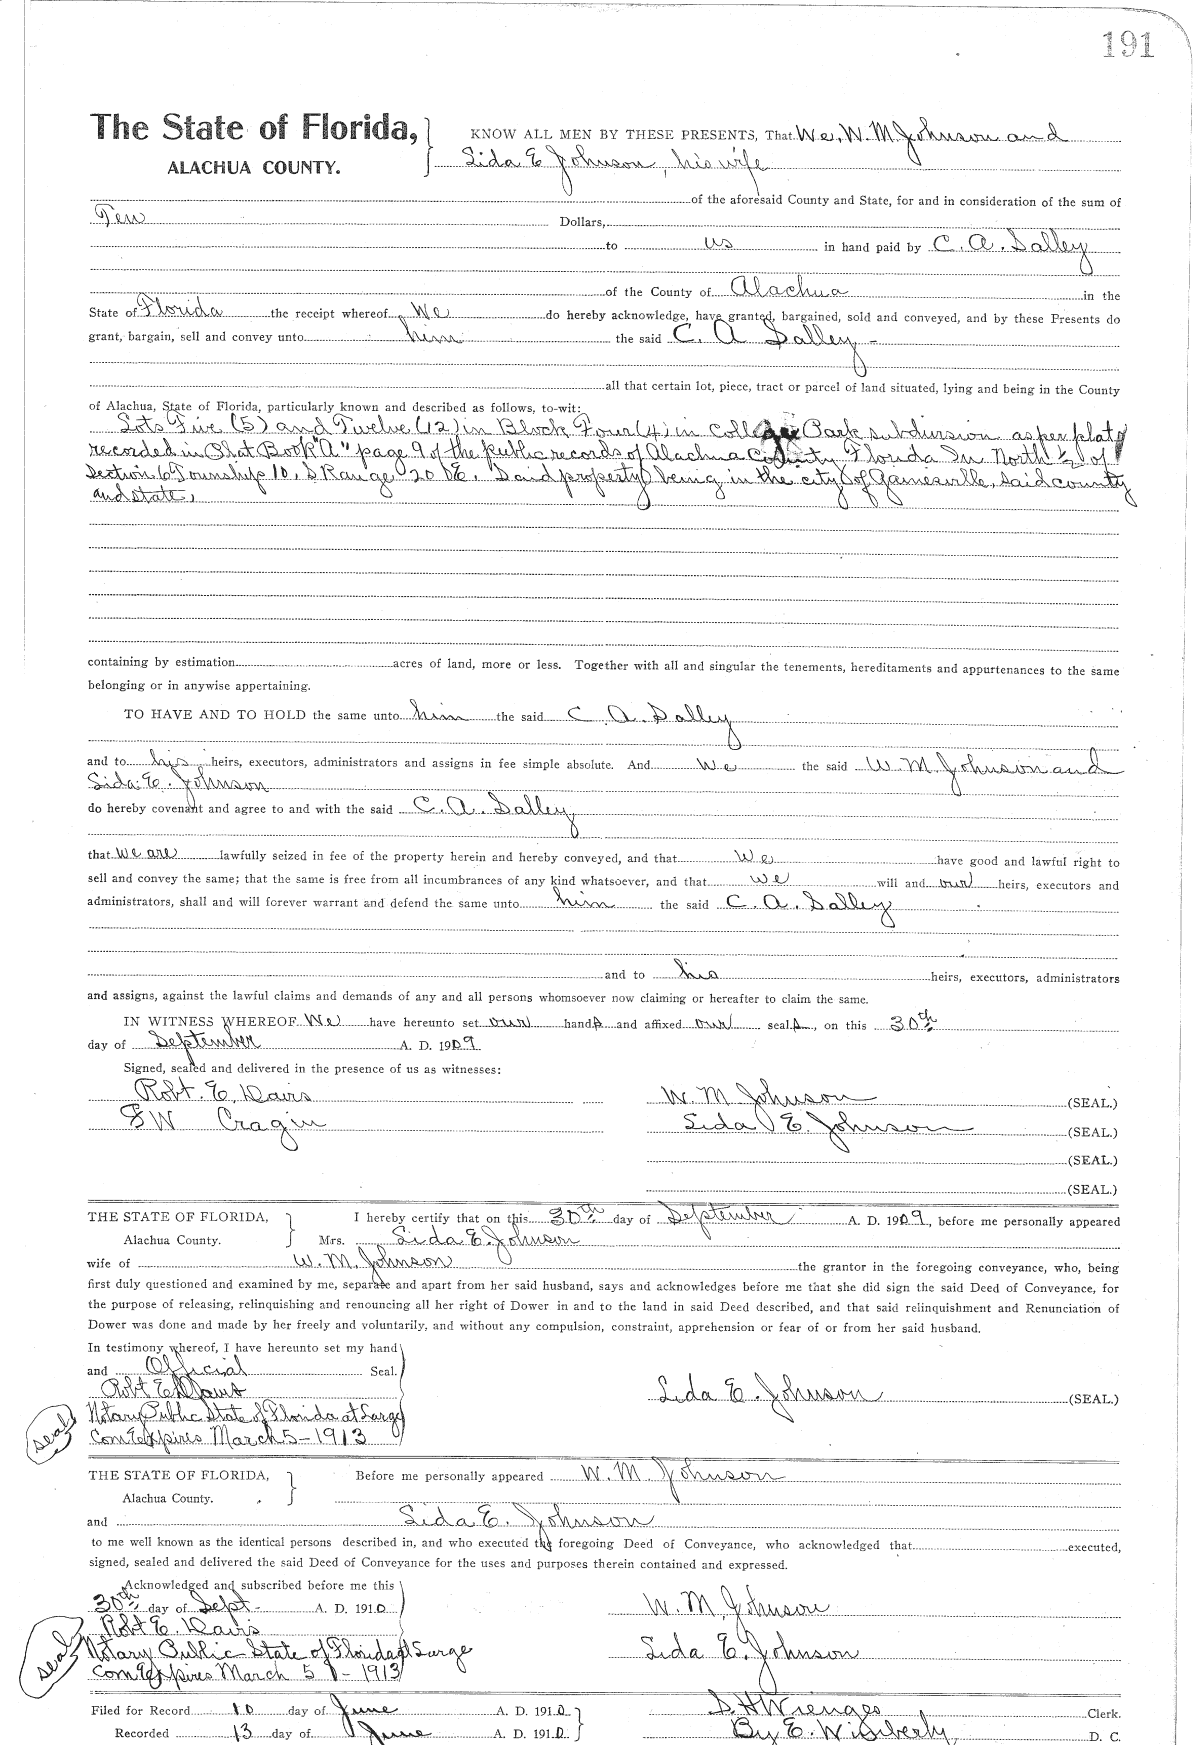 191
The State of Florida, KNOW ALL MEN BY THESE PRESENTS, That We, W. M. Johnson and
ALACHUA COUNTY. Lida E Johnson, his wife
of the aforesaid County and State, for and in consideration of the sum of
Ten Dollars,
to us in hand paid by C. A. Salley
of the County of Alachua in the
State of Florida the receipt whereof We do hereby acknowledge, have granted, bargained, sold and conveyed, and by these Presents do
grant, bargain, sell and convey unto him the said C. A Salley -
all that certain lot, piece, tract or parcel of land situated, lying and being in the County
of Alachua, State of Florida, particularly known and described as follows, to-wit:
Lots Five (5) and Twelve (12) in Block Four (4) in College Park subdivision as per plat
recorded in Plat Book "A" page 9 of the public records of Alachua County Florida In North ½ of
Section 6 Township 10, S Range 20 E. Said property being in the city of Gainesville, said county
and state,
containing by estimation acres of land, more or less. Together with all and singular the tenements, hereditaments and appurtenances to the same
belonging or in anywise appertaining.
TO HAVE AND TO HOLD the same unto him the said C. A. Salley
and to his heirs, executors, administrators and assigns in fee simple absolute. And We the said W. M. Johnson and
Lida E. Johnson
do hereby covenant and agree to and with the said C. A. Salley
that we are lawfully seized in fee of the property herein and hereby conveyed, and that We have good and lawful right to
sell and convey the same; that the same is free from all incumbrances of any kind whatsoever, and that we will and our heirs, executors and
administrators, shall and will forever warrant and defend the same unto him the said C. A. Salley
and to his heirs, executors, administrators
and assigns, against the lawful claims and demands of any and all persons whomsoever now claiming or hereafter to claim the same.
IN WITNESS WHEREOF We have hereunto set our hands and affixed our seals, on this 30th
day of September A. D. 1909
Signed, sealed and delivered in the presence of us as witnesses:
Robt. E. Davis W. M Johnson (SEAL.)
Cragin Lida E. Johnson (SEAL.)
(SEAL.)
(SEAL.)
THE STATE OF FLORIDA, I hereby certify that on this 30th day of September A. D. 1909, before me personally appeared
Alachua County. Mrs. Lida E. Johnson
wife of W. M. Johnson the grantor in the foregoing conveyance, who, being
first duly questioned and examined by me, separate and apart from her said husband, says and acknowledges before me that she did sign the said Deed of Conveyance, for
the purpose of releasing, relinquishing and renouncing all her right of Dower in and to the land in said Deed described, and that said relinquishment and Renunciation of
Dower was done and made by her freely and voluntarily, and without any compulsion, constraint, apprehension or fear of or from her said husband.
In testimony whereof, I have hereunto set my hand
and Official Seal.
Robt E Davis Lida E. Johnson (SEAL)
Notary Public State of Florida at Large
seal Com Expires March 5-1913
THE STATE OF FLORIDA, Before me personally appeared W. M. Johnson
Alachua County.
and Lida E. Johnson
to me well known as the identical persons described in, and who executed the foregoing Deed of Conveyance, who acknowledged that executed,
signed, sealed and delivered the said Deed of Conveyance for the uses and purposes therein contained and expressed.
Acknowledged and subscribed before me this
30th day of Sept- A. D. 1910 W. M. Johnson
Robt E. Davis
seal Notary Public State of Florida at Large Lida E. Johnson
Com Expires March 5 - 1913
Filed for Record 10 day of June A. D. 1910 S. H Wienges Clerk.
Recorded 13 day of June A. D. 1910 By E. Wimberly, D. C.